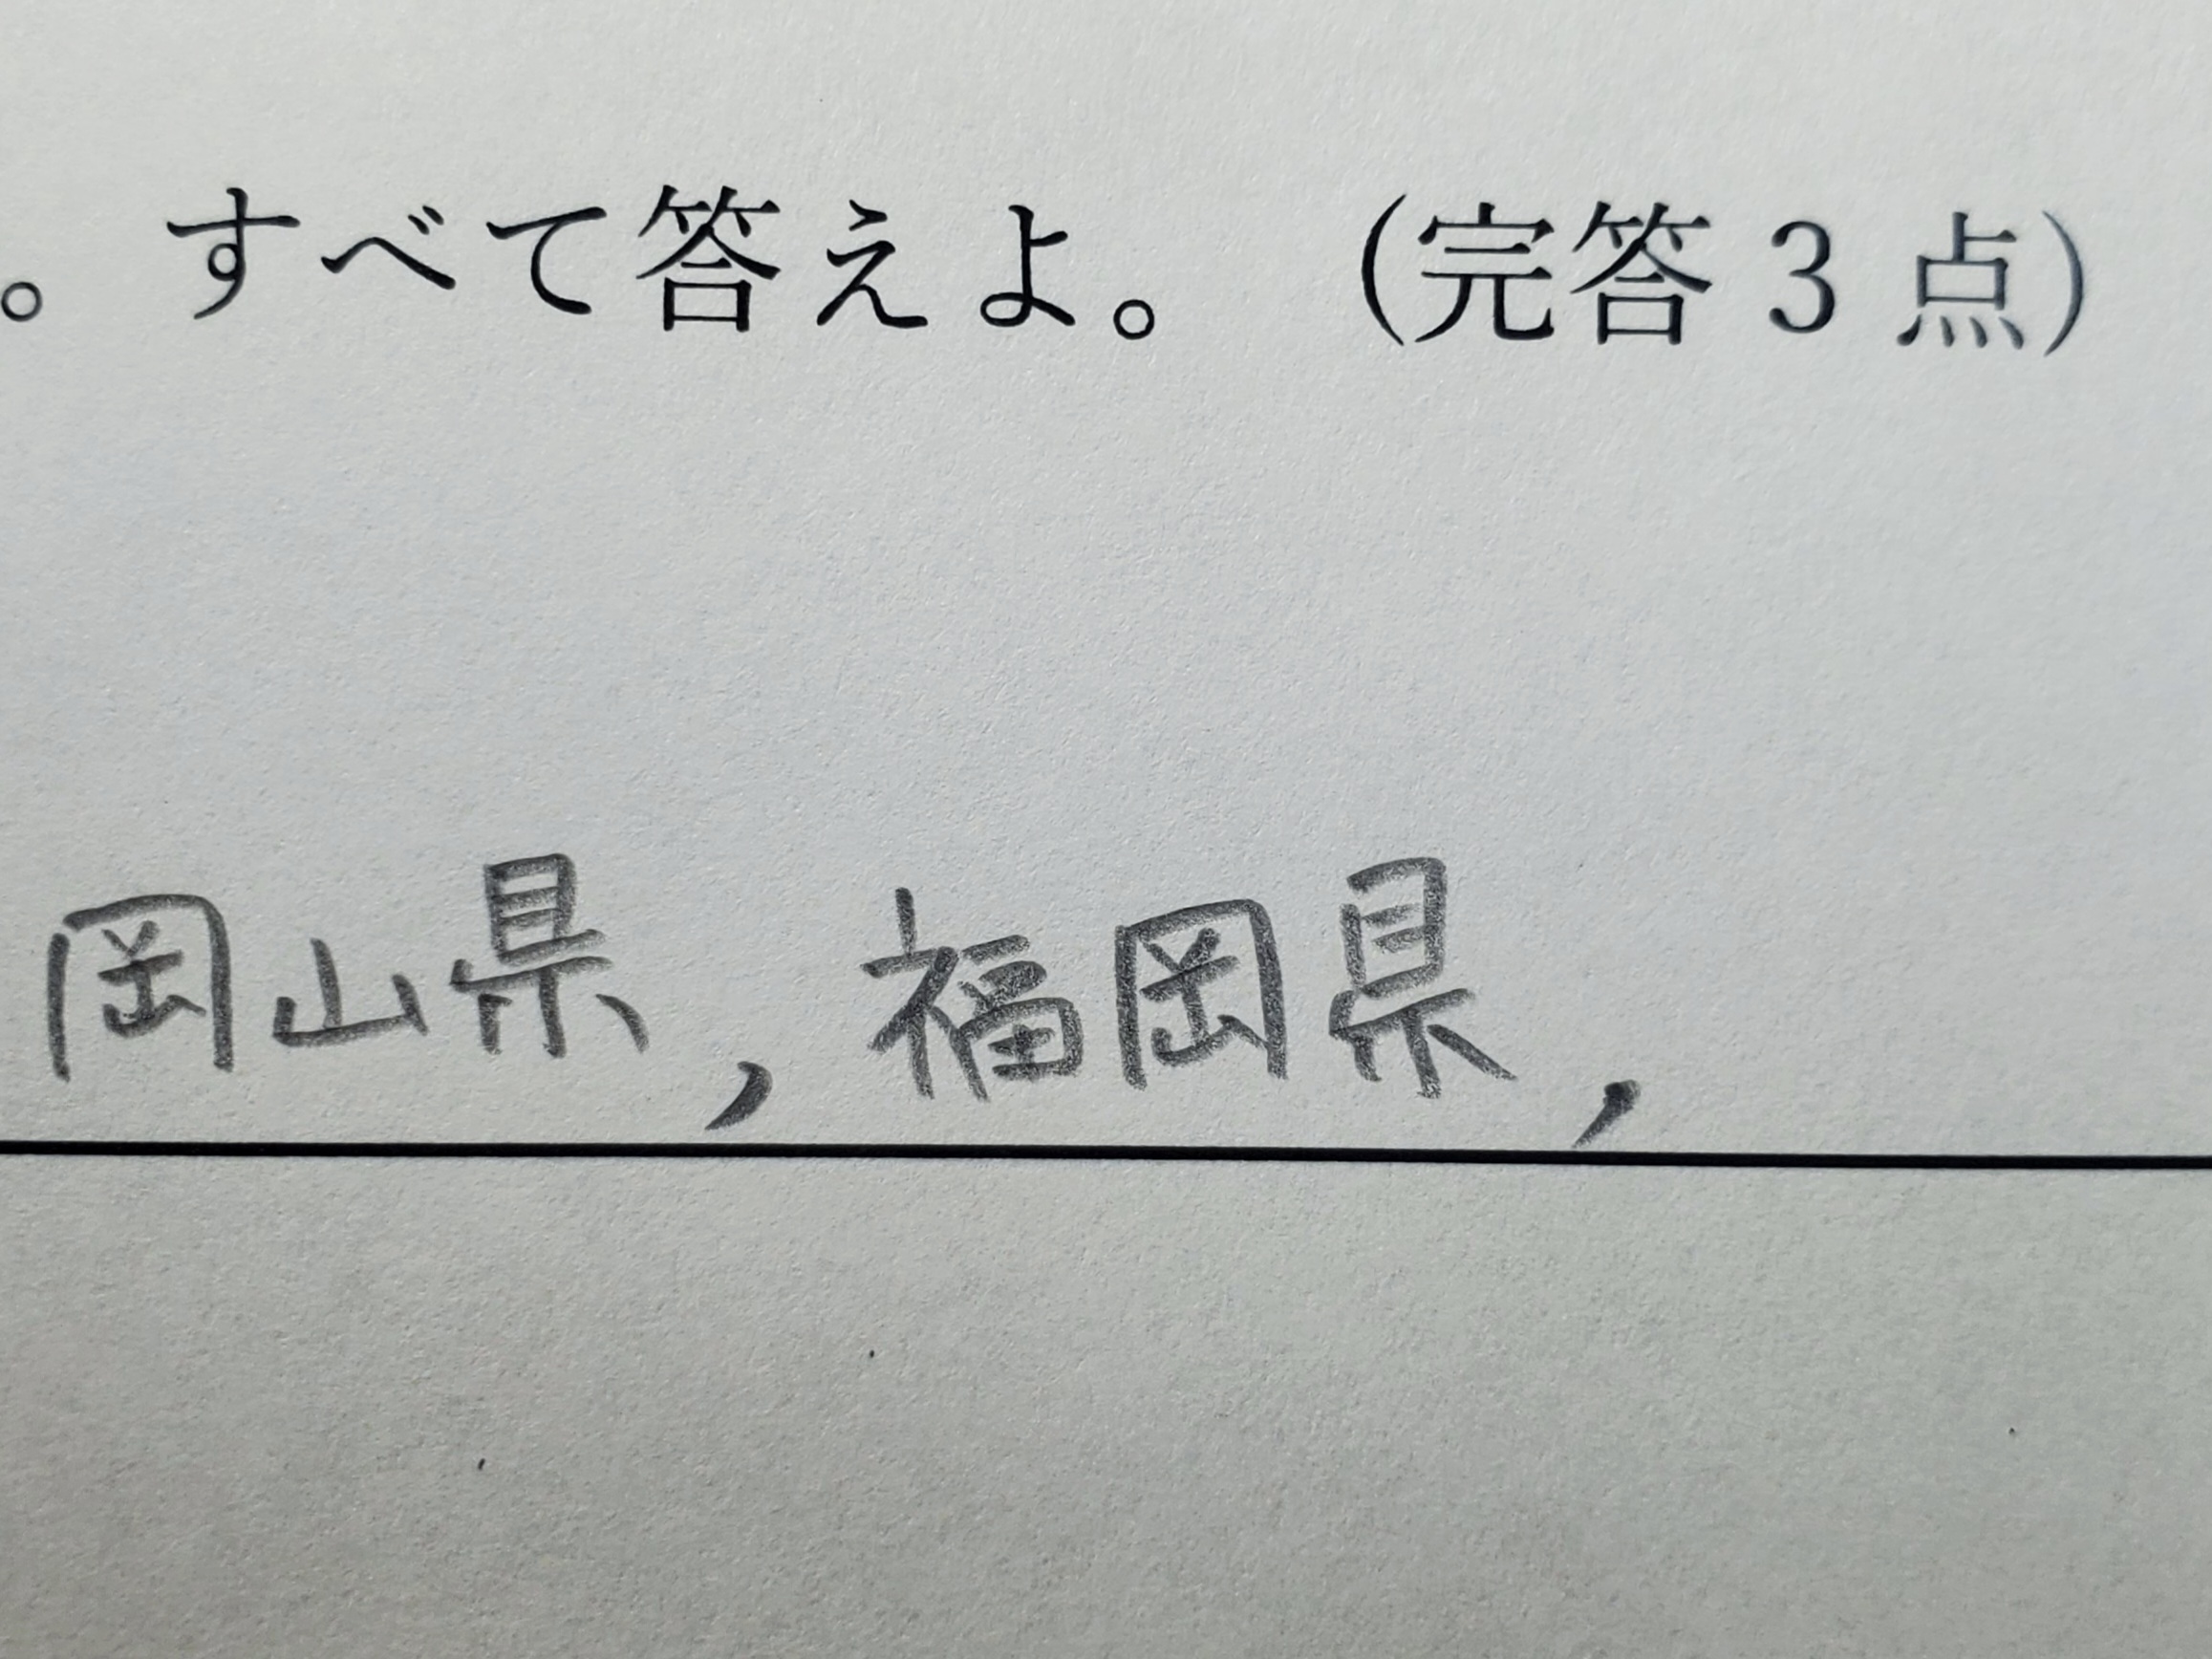 。すべて答えよ。 (完答 3 点)
岡山県, 福岡県,